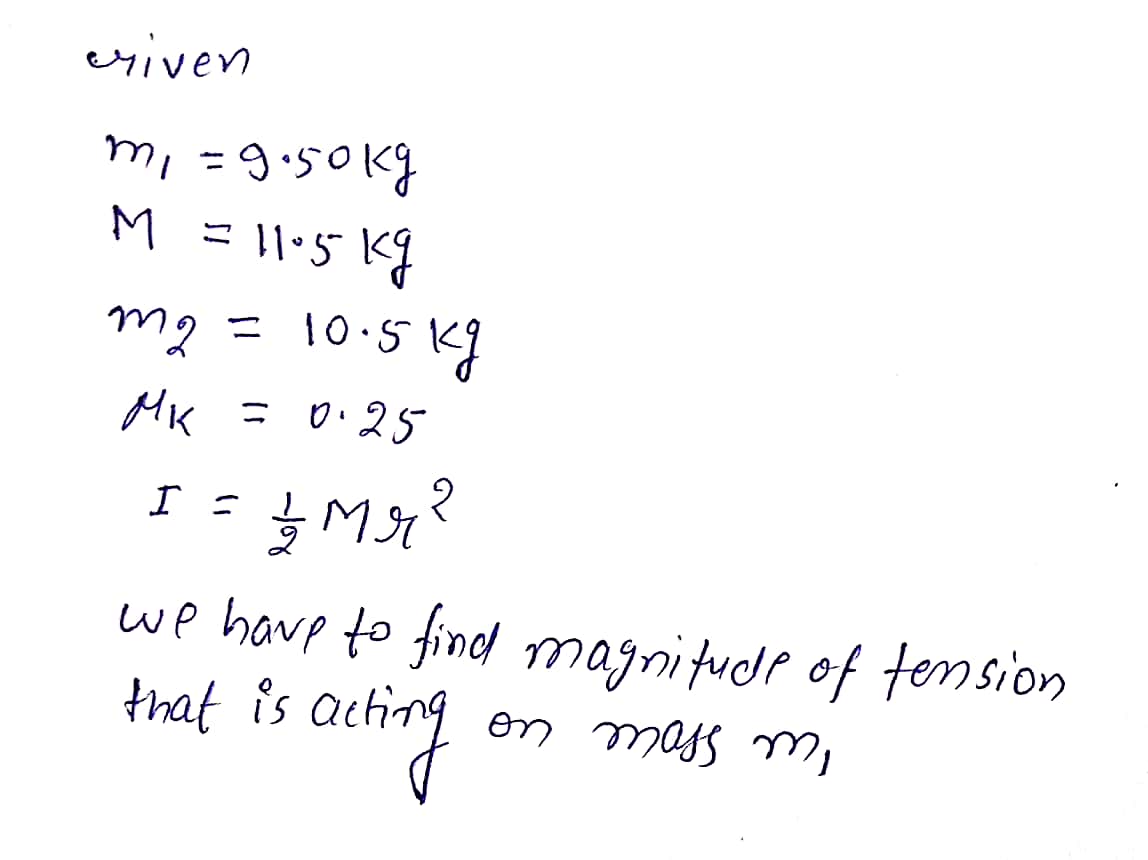 Given
m₁ = 9.50 kg
M = 11.5 kg
m₂ = 10.5 kg
μₖ = 0.25
I = ½ Mr²
we have to find magnitude of tension
that is acting on mass m₁